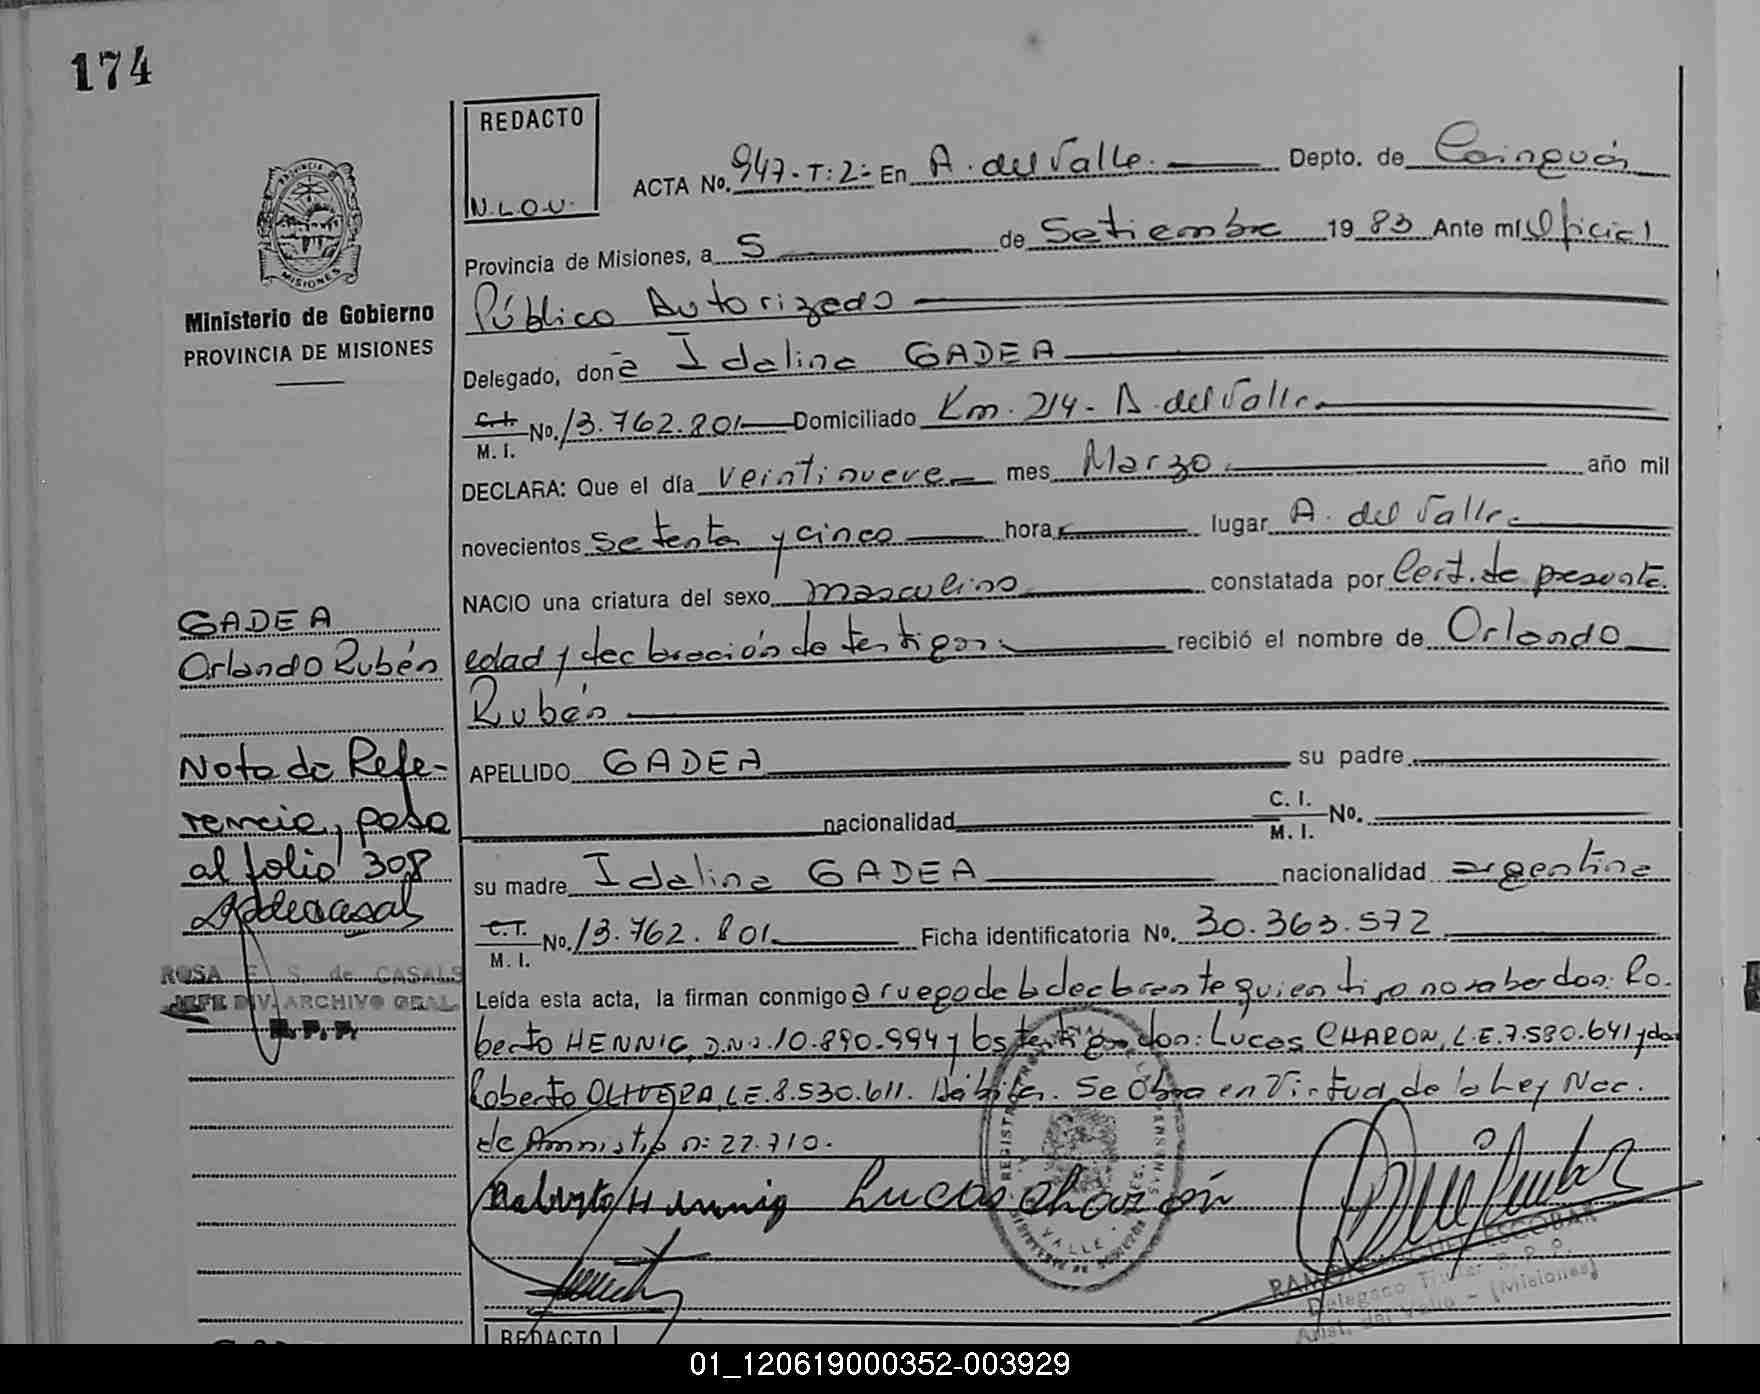 174
REDACTO
N.L.O.U.
ACTA No. 947-T:2- En A. del Valle. Depto. de Cainguás
Provincia de Misiones, a 5 de Setiembre 1983 Ante mi Oficial
Público Autorizado
MISIONES
Ministerio de Gobierno
PROVINCIA DE MISIONES
Delegado, doña Idalina GADEA
C.I. M. I. No. 13.762.801 Domiciliado Km. 214- A. del Valle.
DECLARA: Que el día veintinueve mes Marzo año mil
novecientos setenta y cinco hora lugar A. del Valle.
NACIO una criatura del sexo masculino constatada por Cert. de presunta.
edad y declaración de testigos. recibió el nombre de Orlando
Rubén
APELLIDO GADEA su padre
nacionalidad C. I. M. I. No.
su madre Idalina GADEA nacionalidad argentina
C.I. M. I. No. 13.762.801 Ficha identificatoria No. 30.363.572
Leída esta acta, la firman conmigo a ruego de la declarante quien dijo no saber don: Ro-
berto HENNIG, D.N.I. 10.890.994 y los testigos don: Lucas CHARON, L.E. 7.580.641 y don
Roberto OLIVERA, L.E. 8.530.611. Hábiles. Se Obra en Virtud de la Ley Nac.
de Amnistía n: 22.710.
Roberto Hennig Lucas Charón
GADEA
Orlando Rubén
Nota de Refe-
rencia, pasa
al folio 308
ROSA E. S. de CASALS
JEFE DIV. ARCHIVO GRAL.
R. P. P.
VALLE
ESCOBAR
Delegado Titular R. P. P.
Arist. del Valle - (Misiones)
REDACTO
01_120619000352-003929